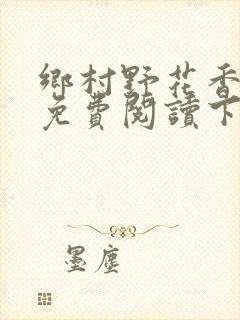 鄉村野花香
免費閱讀下
墨塵